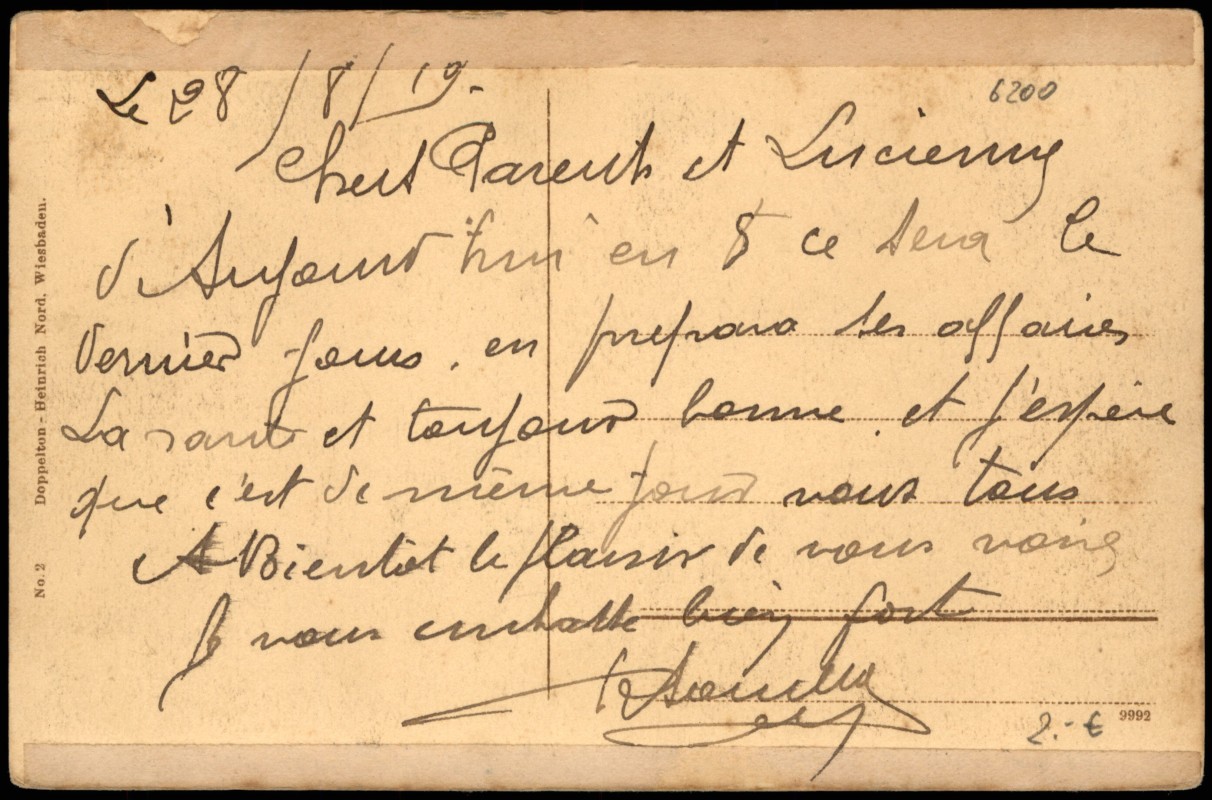 Le 28/8/19.
6200
Chers Parents et Lucienne
d'Aujourd'hui en 8 ce sera le
dernier jours. en prepara ses affaires
La santé et toujours bonne. et j'espère
que c'est de même pour vous tous
A Bientot le plaisir de vous voire
Je vous embrasse bien fort
No. 2 Doppelton-Heinrich Nord, Wiesbaden.
9992
2.- €